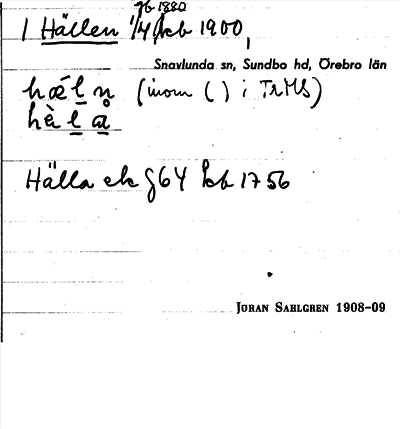 Jb 1880
1 Hällen 1/4 Jeb 1900,
Snavlunda sn, Sundbo hd, Örebro län
hǽl̠n̥ (inom ( ) i TrMS)
hèl̠a̠
Hälla ek § 64 Jeb 1756
JÖRAN SAHLGREN 1908-09